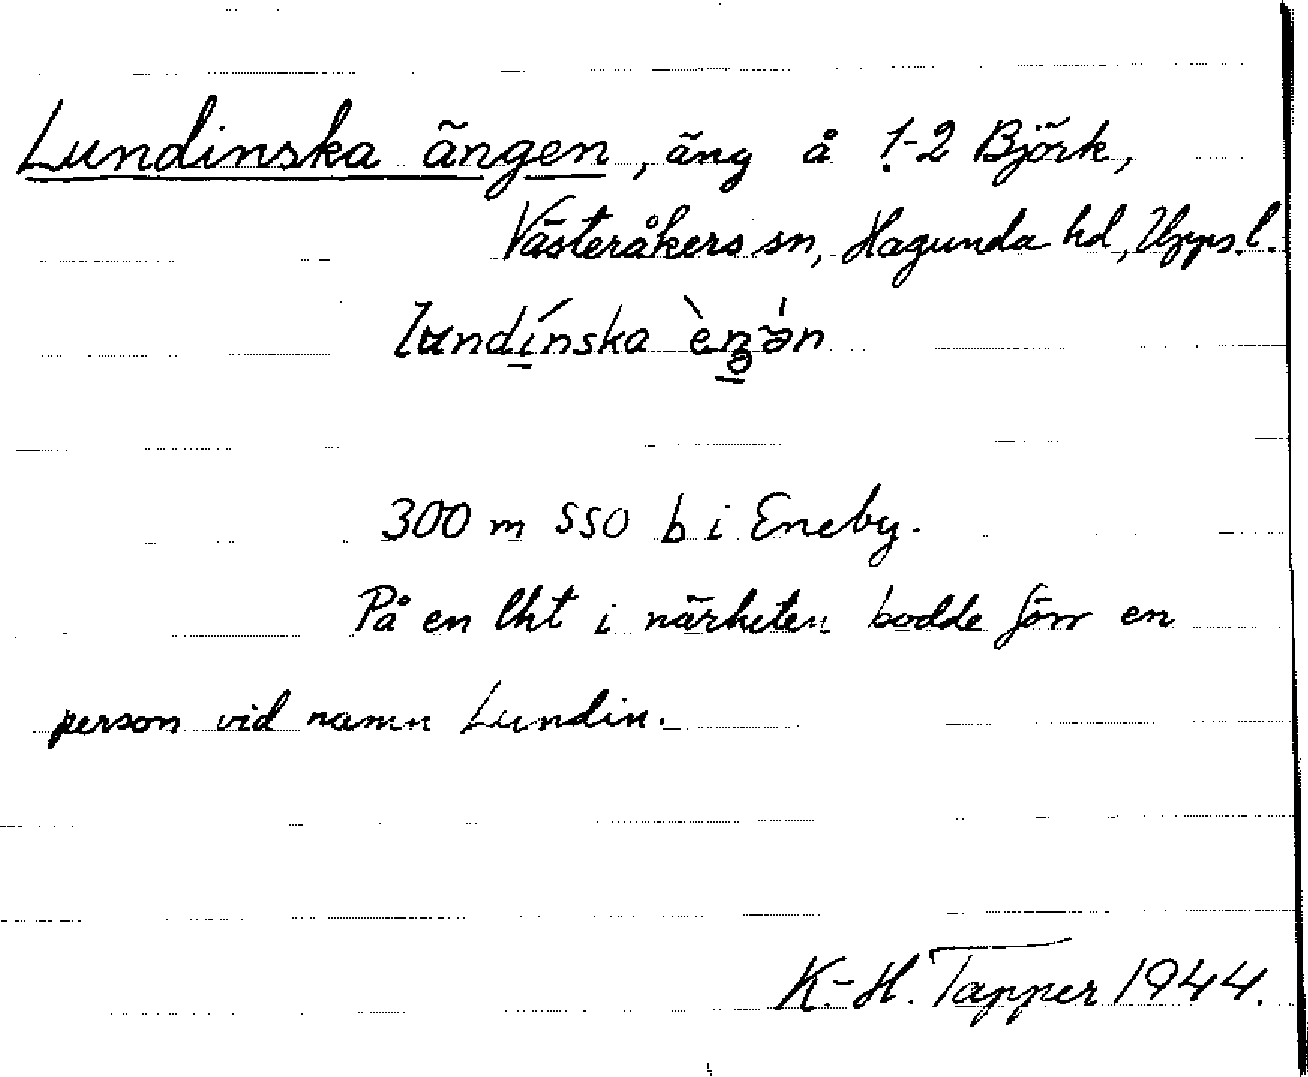 Lundinska ängen, äng å 1-2 Björk,
Västeråkers sn, Hagunda hd, Upps. l.
lundínska
300 m SSO b i Eneby.
På en lht i närheten bodde förr en
person vid namn Lundin.
K-H. Tapper 1944.